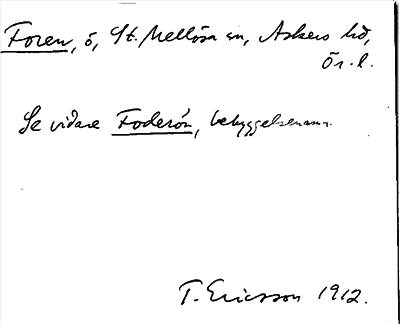 Foren, ö, St. Mellösa sn, Askers hd,
Ör. l.
Se vidare Foderön, bebyggelsenamn.
T. Ericsson 1912.